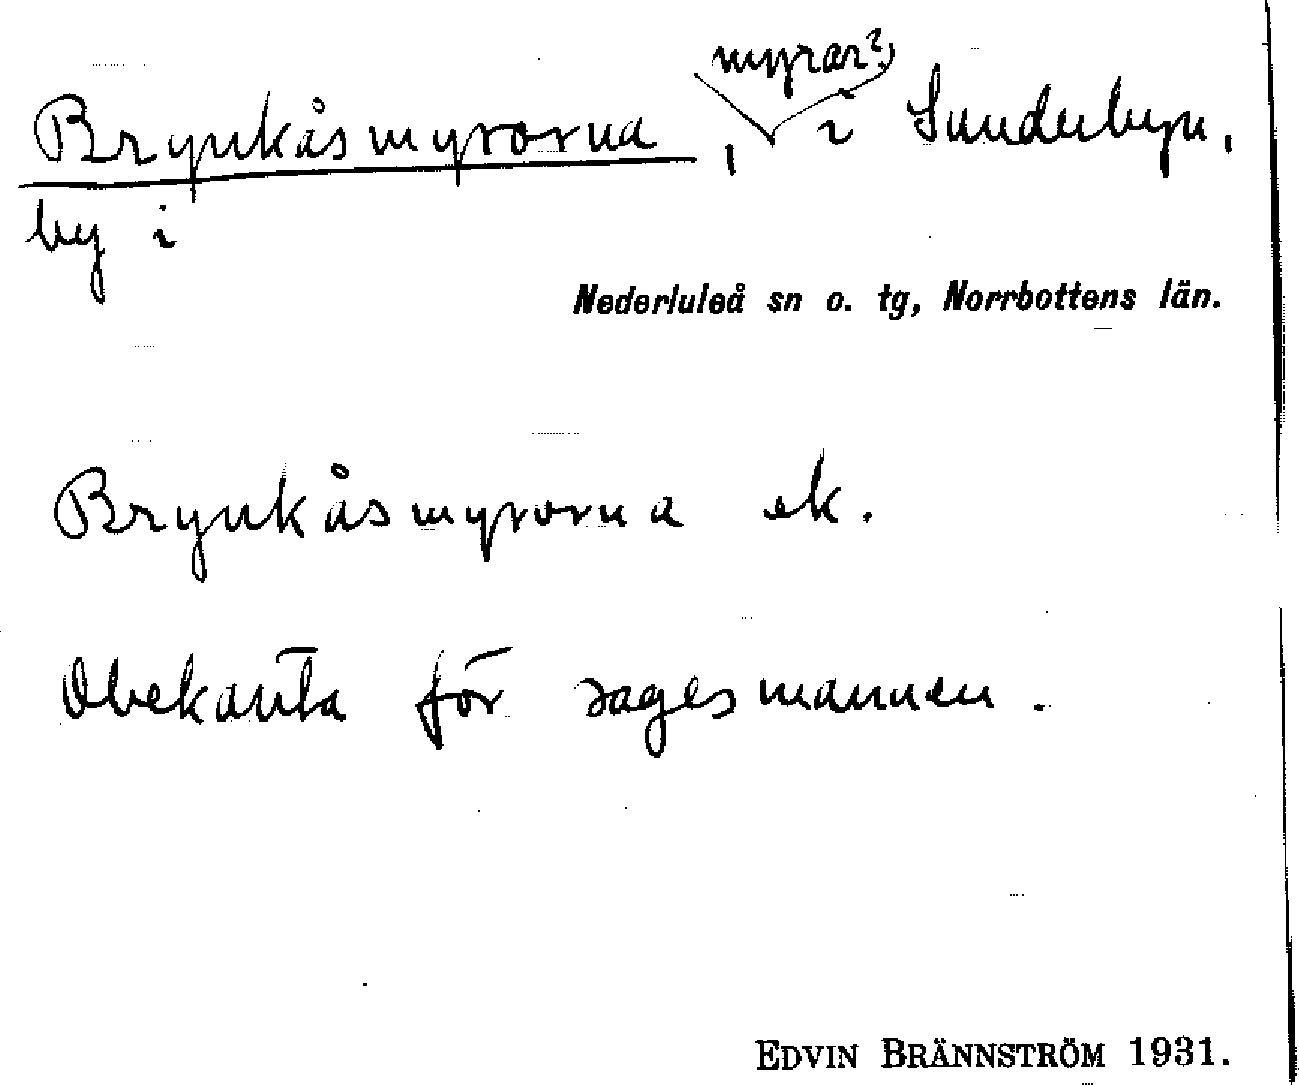 Brynkåsmyrorna, myrar? i Sunderbyn,
by i
Nederluleå sn o. tg, Norrbottens län.
Brynkåsmyrorna ek.
Obekanta för sagesmannen.
EDVIN BRÄNNSTRÖM 1931.